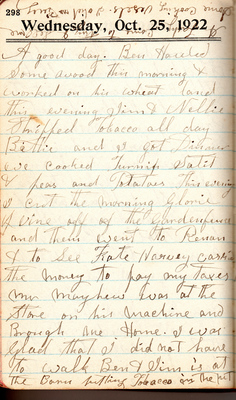 298
Wednesday, Oct. 25, 1922
A good day. Ben Hauled
some wood this morning &
worked on his wheat land
this evening Jim & Nellie
Stripped Tobacco all day
Bettie and I got dinner
we cooked Turnip Salit
& peas and Potatoes This evening
I cut the morning Glorie
vine off of the gardenfence
and then went to Renan
& to See Kate Harvey carried
the money to pay my taxes
Mr Mayhew was at the
Store on his machine and
Brough me Home. I was
Glad that I did not have
to walk Ben & Jim is at
the Barn putting Tobacco in the pit